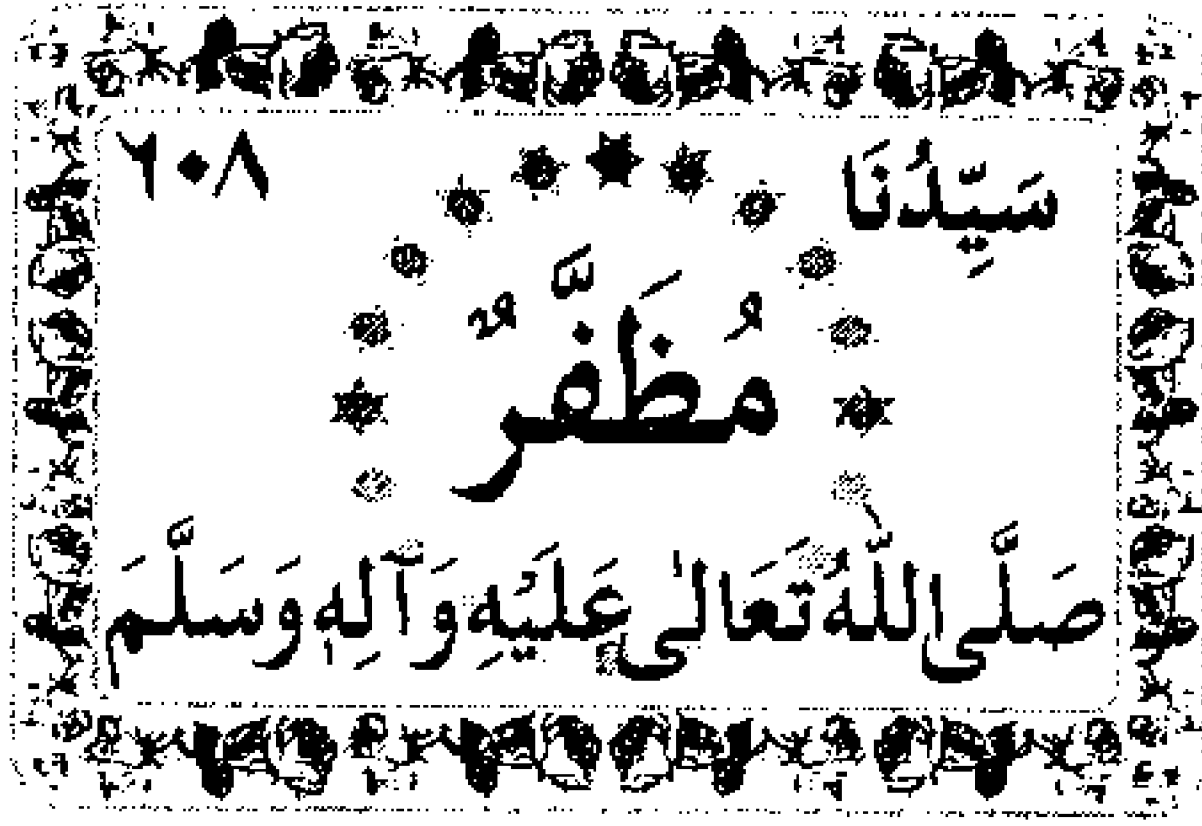 سَيِّدُنَا ٦٠٨
مُظَفَّرٌ
صَلَّى اللّٰهُ تَعَالٰى عَلَيْهِ وَآلِهٖ وَسَلَّمَ